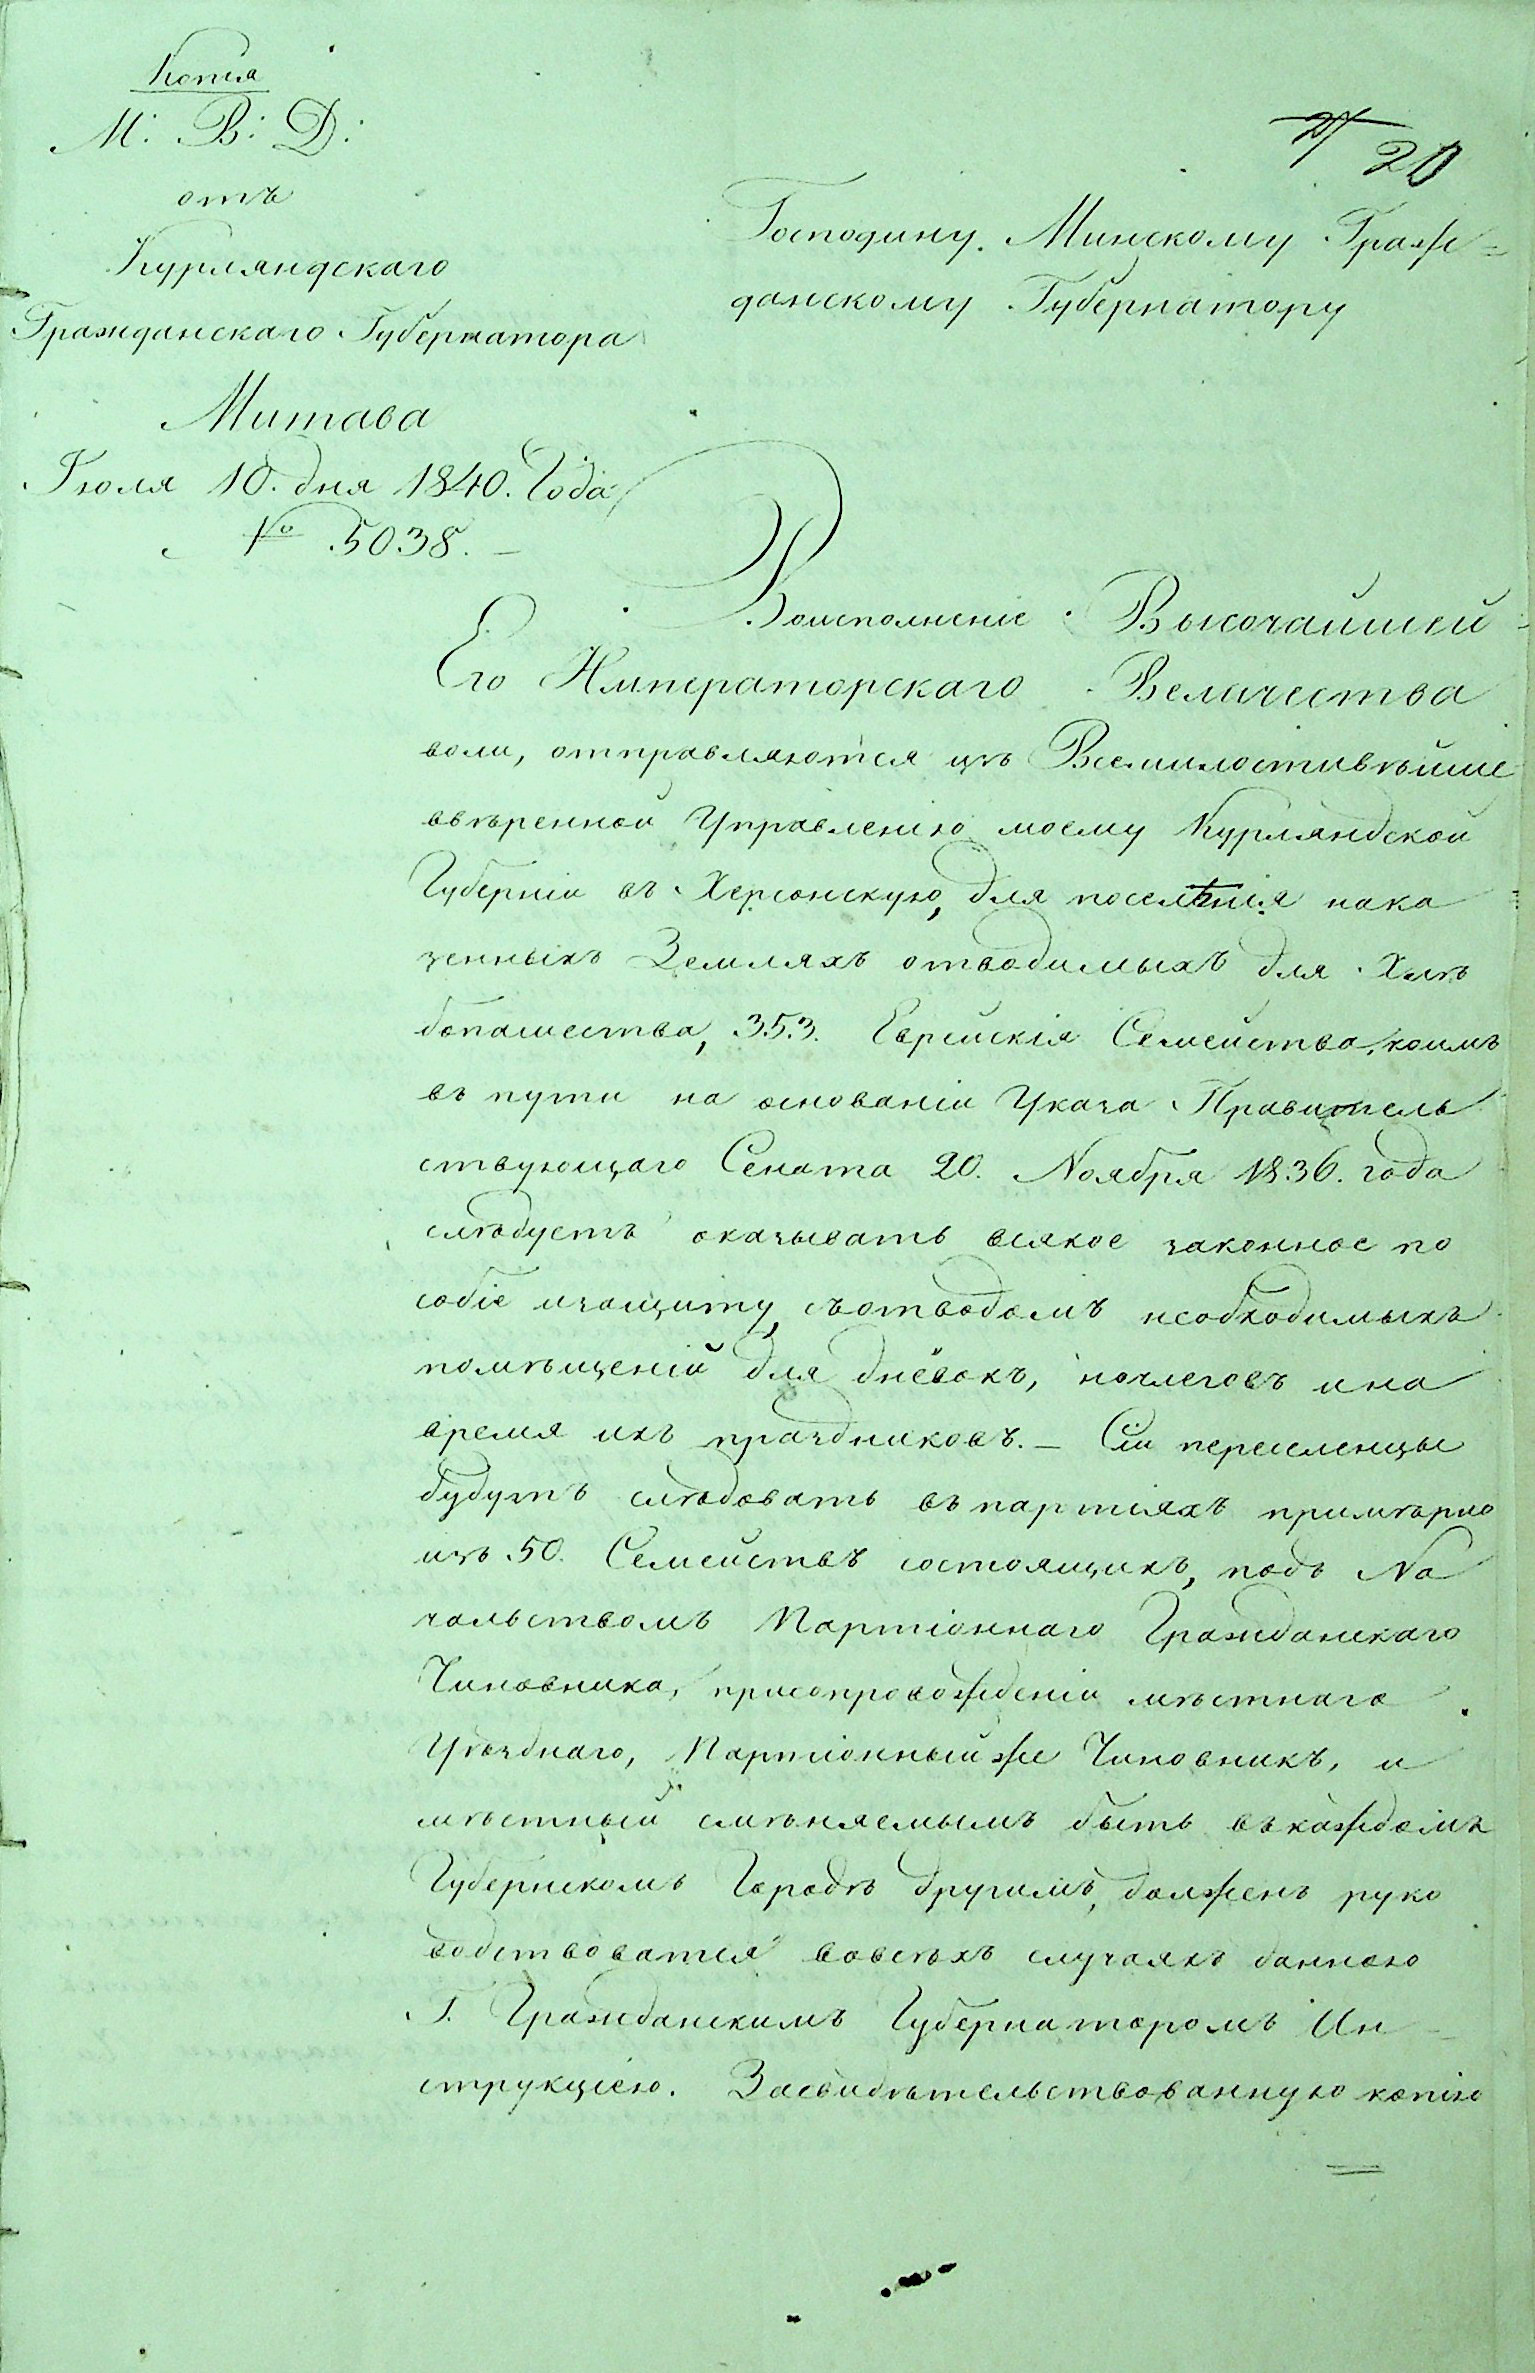 Копія
М: В: Д:
отъ
Курляндскаго
Гражданскаго Губернатора
Митава
Іюля 10. дня 1840. Года
№ 5038.
20
Господину Минскому Граж=
данскому Губернатору
Воисполненіе Высочайшей
Его Императорскаго Величества
воли, отправляются изъ Всемилостивѣйше
ввѣренной Управленію моему Курляндской
Губерніи въ Херсонскую, для поселѣнія нака
зенныхъ Земляхъ отводимыхъ для Хлѣ
бопашества, 353. Еврейскія Семейства, коимъ
въ пути на основаніи Указа Правитель
ствующаго Сената 20. Ноября 1836. года
слѣдуетъ оказывать всякое законное по
собіе изащиту, съотводомъ необходимыхъ
помѣщеній для днёвокъ, ночлеговъ ина
время ихъ праздниковъ. — Сіи переселенцы
будутъ слѣдовать въ партіяхъ примѣрно
изъ 50. Семействъ состоящихъ, подъ На
чальствомъ Партіоннаго Гражданскаго
Чиновника, присопровожденіи мѣстнаго
Уѣзднаго, Партіонныйже Чиновникъ, и
мѣстный смѣняемымъ быть въкаждомъ
Губернскомъ Городѣ другимъ, долженъ руко
водствоватся вовсѣхъ случаяхъ данною
Г. Гражданскимъ Губернаторомъ Ин
струкціею. Засвидѣтельствованную копію